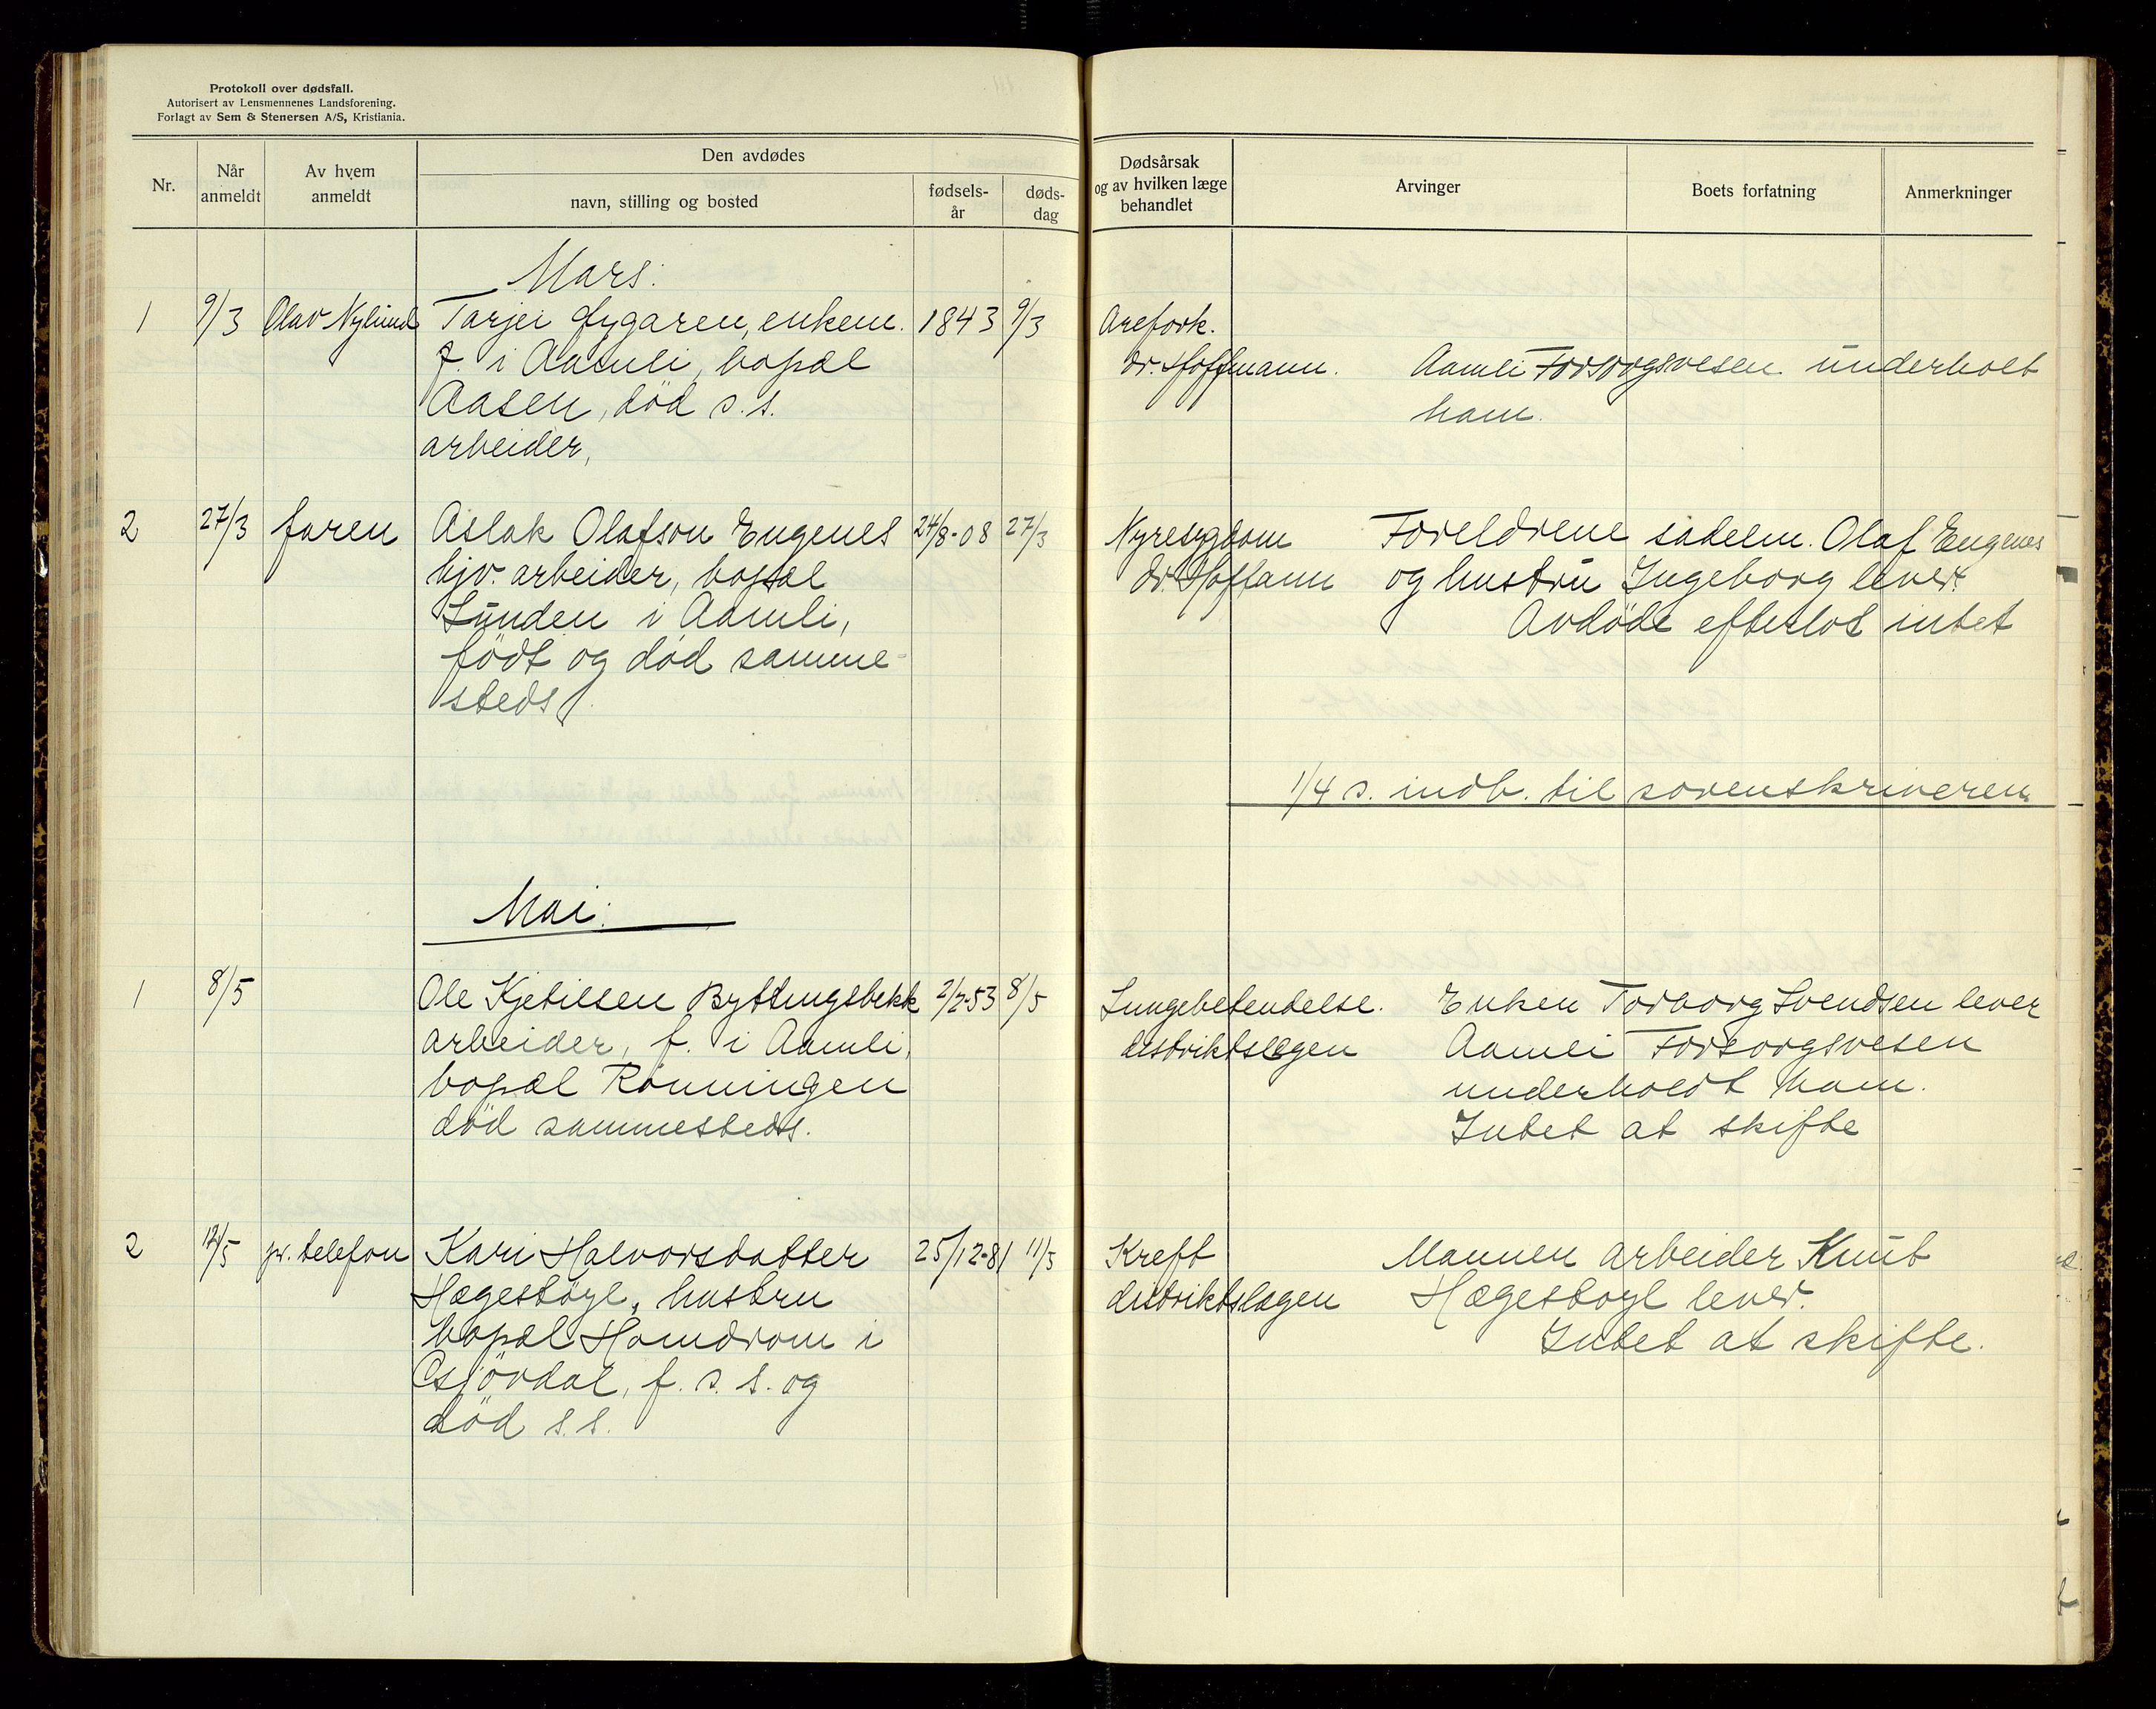 Protokoll over dødsfall.
Autorisert av Lensmennenes Landsforening.
Forlagt av Sem & Stenersen A/S, Kristiania.
Nr.
Når anmeldt
Av hvem anmeldt
Den avdødes
navn, stilling og bosted
fødsels-år
døds-dag
Dødsårsak
og av hvilken læge
behandlet
Arvinger
Boets forfatning
Anmerkninger
Mars:
1 9/3 Olav Nylund Tarjei Fygaren, enkem. 1843 9/3 Arefork.
f. i Aamli, bopæl dr. Hoffmann. Aamli Forsorgsvesen underholt
Aasen, död s. s. ham.
arbeider,
2 27/3 faren Aslak Olafson Engenes 24/8-08 27/3 Nyresygdom Foreldrene sadelm. Olaf Engenes
hjv. arbeider, bopæl dr. Hoffann og hustru Ingeborg lever.
Lunden i Aamli, Avdöde efterlot intet
födt og död samme-
steds.
1/4 s. indb. til sorenskriveren
Mai:
1 8/5 Ole Kjetilsen Byttingsbekk 2/2-53 8/5 Lungebetendelse. Enken Torborg Svendsen lever
arbeider, f. i Aamli, distriktslægen Aamli Forsorgsvesen
bopæl Rönningen underholdt ham.
död sammesteds. Intet at skifte
2 12/5 pr. telefon Kari Halvorsdatter 25/12-81 11/5 Kreft Mannen arbeider Knut
Hægestöyl, hustru distriktslægen Hægestöyl lever.
bopæl Homdrom i Intet at skifte.
Gjövdal, f. s. s. og
död s. s.